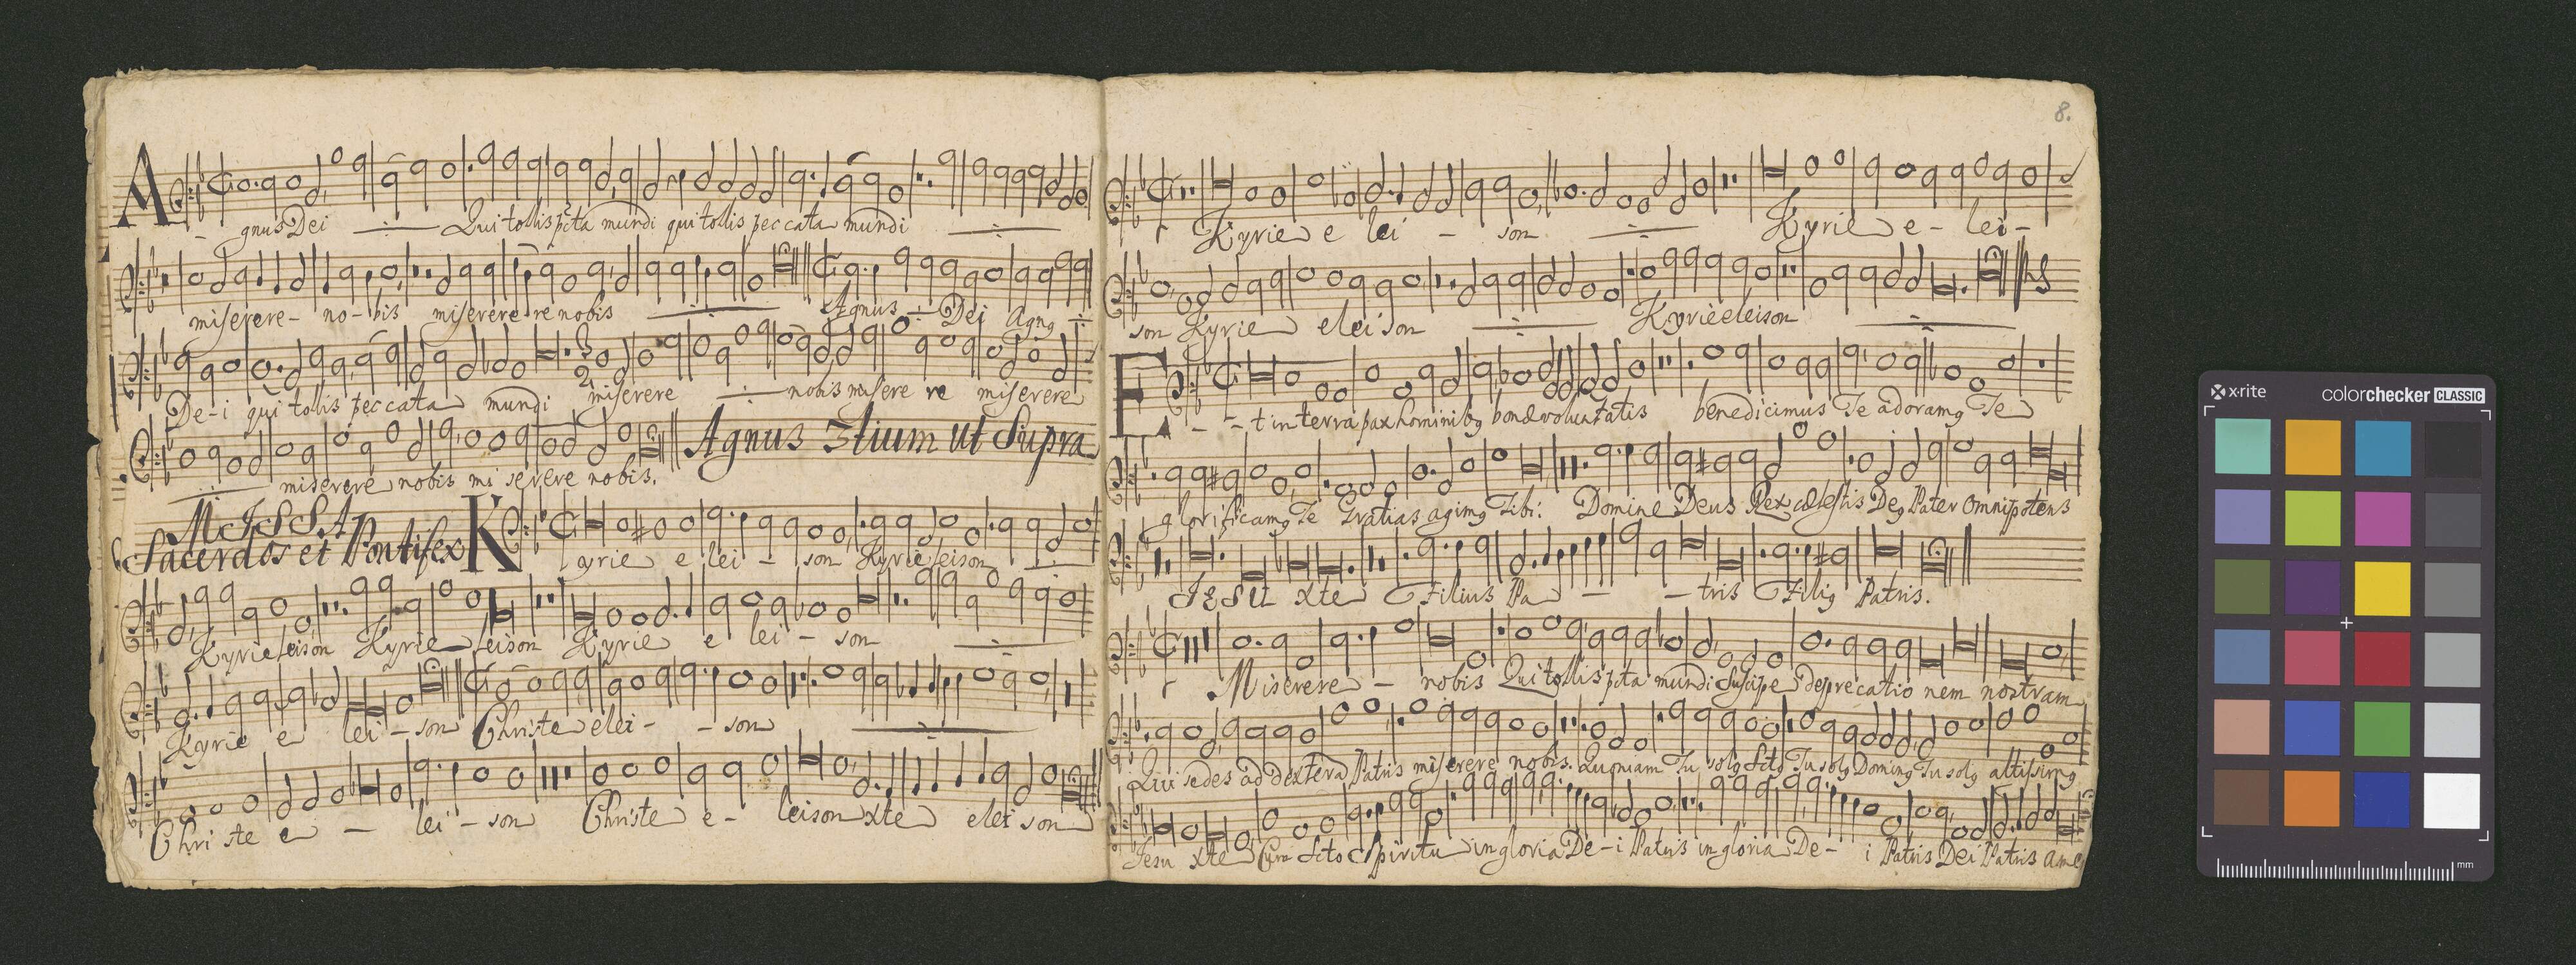 A - gnus Dei Qui tollis pcta mundi qui tollis peccata mundi
miserere - no - bis miserere re nobis Agnus Dei Agng
De - i qui tollis peccata mundi miserere nobis misere re miserere
miserere nobis mi serere nobis. Agnus 3tium ut Supra
MISSA
Sacerdos et Pontifex Kyrie e lei - son Kyrie leison
Kyrie leison Kyrie leison Kyrie e lei - son
Kyrie e lei - son Christe elei - - son
Chri ste e - lei - son Christe e - leison xte elei son
8.
Kyrie e lei - son Kyrie e - lei -
son Kyrie eleison Kyrie eleison
E - - t in terra pax hominibg bonæ voluntatis benedicimus Te adoramg Te
glorificamg Te Gratias agimg Tibi: Domine Deus Rex cœlestis Deg Pater Omnipotens
JESU xte Filius Pa - - tris Filig Patris.
Miserere - nobis Qui tollis pcta mundi Suscipe deprecatio nem nostram
Qui sedes ad dextera Patris miserere nobis. Quoniam Tu solg Sctg Tu solg Doming Tu solg altissimg
Jesu xte Cum Scto Spiritu in gloria De - i Patris in gloria De - i Patris Dei Patris Ame
x-rite colorchecker CLASSIC
mm